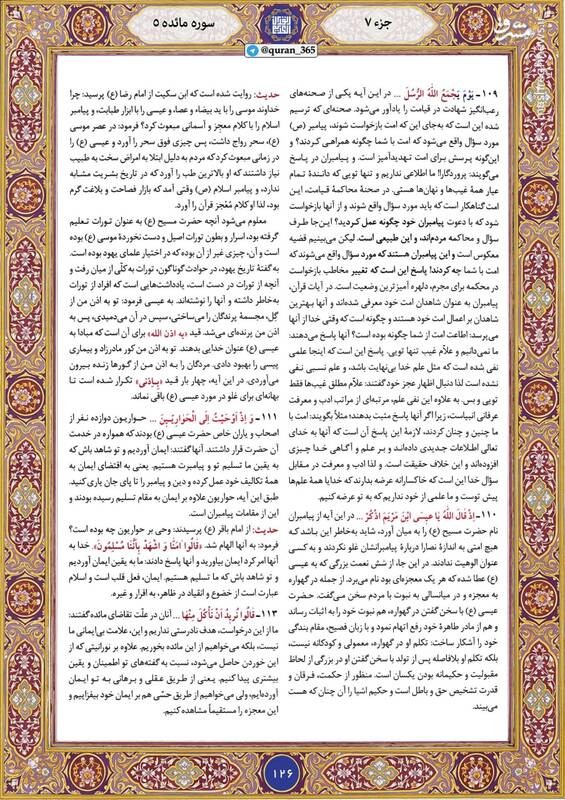 جزء ۷
سوره مائده ۵
@quran_365
مشرق
۱۰۹- یَوْمَ یَجْمَعُ اللهُ الرُّسُلَ ... در این آیه یکی از صحنه‌های
رعب‌انگیز شهادت در قیامت را یادآور می‌شود. صحنه‌ای که ترسیم
شده این است که به‌جای این که امت بازخواست شوند، پیامبر (ص)
مورد سؤال واقع می‌شود که امت با شما چگونه همراهی کردند؟ و
این‌گونه پرسش برای امت تهدیدآمیز است. و پیامبران در پاسخ
می‌گویند: پروردگارا! ما اطلاعی نداریم و تنها تویی که دانندهٔ تمام
عیار همهٔ غیب‌ها و نهان‌ها هستی. در صحنهٔ محاکمهٔ قیامت، این
امت گناهکار است که باید مورد سؤال واقع شوند و از آنها بازخواست
شود که با دعوت پیامبران خود چگونه عمل کردید؟ این‌جا طرف
سؤال و محاکمه مردم‌اند، و این طبیعی است. لیکن می‌بینیم قضیه
معکوس است و این پیامبران هستند که مورد سؤال واقع می‌شوند که
امت با شما چه کردند! پاسخ این است که تغییر مخاطب بازخواست
در محکمه برای مجرم، دلهره آمیزترین وضعیت است. در آیات قرآن،
پیامبران به عنوان شاهدان امت خود معرفی شده‌اند و آنها بهترین
شاهدان بر اعمال امت خود هستند و چگونه است که وقتی خدا از آنها
می‌پرسد: اطاعت امت از شما چگونه بوده است؟ آنها پاسخ می‌دهند:
ما نمی‌دانیم و علّام غیب تنها تویی. پاسخ این است که اینجا علمی
نفی شده است که مثل علم خدا بی‌نهایت باشد، و علم نسبی نفی
نشده است لذا دنبال اظهار عجز خود گفتند: علّام مطلق غیب‌ها فقط
تویی و بس. به علاوه این نفی علم، مرتبه‌ای از مراتب ادب و معرفت
عرفانی انبیاست، زیرا اگر آنها پاسخ مثبت بدهند؛ مثلاً بگویند: امت با
ما چنین و چنان کردند، لازمهٔ این پاسخ آن است که آنها به خدای
تعالی اطلاعات جدیدی داده‌اند و بر علم و آگاهی خدا چیزی
افزوده‌اند و این خلاف حقیقت است. و لذا ادب و معرفت در مقابل
سؤال خدا این است که خاکسارانه عرضه بدارند که خدایا همهٔ علم‌ها
پیش توست و ما علمی از خود نداریم که به تو عرضه کنیم.
۱۱۰- اِذْ قالَ اللهُ یا عیسَی ابْنَ مَرْیَمَ اذْکُرْ ... در این آیه از پیامبران
نام حضرت مسیح (ع) را به میان آورد، شاید به‌خاطر این باشد که
هیچ امتی به اندازهٔ نصارا دربارهٔ پیامبرانشان غلو نکردند و به کسی
عنوان الوهیت ندادند. در این جا، از شش نعمت بزرگی که به عیسی
(ع) عطا شده که هر یک معجزه‌ای بود نام می‌برد. از جمله در گهواره
به معجزه و در میانسالی به نبوت با مردم سخن می‌گفت. حضرت
عیسی (ع) با سخن گفتن در گهواره، هم نبوت خود را به اثبات رساند
و هم از مادر طاهرهٔ خود رفع اتهام نمود و با زبان فصیح، مقام بندگی
خود را آشکار ساخت: تکلم او در گهواره، معمولی و کودکانه نیست،
بلکه تکلم او بلافاصله پس از تولد با سخن گفتن او در بزرگی از لحاظ
مقبولیت و حکیمانه بودن یکسان است. منظور از حکمت، فرقان و
قدرت تشخیص حق و باطل است و حکیم اشیا را آن چنان که هست
می‌بیند.
حدیث: روایت شده است که ابن سکیت از امام رضا (ع) پرسید: چرا
خداوند موسی را با ید بیضاء و عصا، و عیسی را با ابزار طبابت، و پیامبر
اسلام را با کلام معجز و آسمانی مبعوث کرد؟ فرمود: در عصر موسی
(ع)، سحر رواج داشت، پس چیزی فوق سحر را آورد و عیسی (ع) را
در زمانی مبعوث کرد که مردم به دلیل ابتلا به امراض سخت به طبیب
نیاز داشتند که او بالاترین طب را آورد که در تاریخ بشریت مشابه
ندارد، و پیامبر اسلام (ص) وقتی آمد که بازار فصاحت و بلاغت گرم
بود، لذا او کلام معجز قرآن را آورد.
معلوم می‌شود آنچه حضرت مسیح (ع) به عنوان تورات تعلیم
گرفته بود، اسرار و بطون تورات اصیل و دست نخوردهٔ موسی (ع) بوده
است و آن، چیزی غیر از آن بوده که در اختیار علمای یهود بوده است.
به گفتهٔ تاریخ یهود، در حوادث گوناگون، تورات به کلّی از میان رفت و
آنچه از تورات در دست است، یادداشت‌هایی است که افراد از تورات
به‌خاطر داشته و آنها را نوشته‌اند. به عیسی فرمود: تو به اذن من از
گِل، مجسمهٔ پرندگان را می‌ساختی، سپس در آن می‌دمیدی، پس به
اذن من پرنده‌ای می‌شد. قید «به اذن الله» برای آن است که مبادا به
عیسی (ع) عنوان خدایی بدهند. تو به اذن من کور مادرزاد و بیماری
پیسی را بهبود دادی. مردگان را به اذن من از گورها زنده بیرون
می‌آوردی. در این آیه، چهار بار قید «بِاِذْنی» تکرار شده است تا
بهانه‌ای برای غلو در مورد عیسی (ع) باقی نماند.
۱۱۱- وَ اِذْ اَوْحَیْتُ اِلَی الْحَوارِیّینَ ... حواریون دوازده نفر از
اصحاب و یاران خاص حضرت عیسی (ع) بودند که همواره در خدمت
آن حضرت قرار داشتند. آنها گفتند: ایمان آوردیم و تو شاهد باش که
به یقین ما تسلیم تو و پیامبرت هستیم. یعنی به اقتضای ایمان به
همهٔ تکالیف خود عمل کرده و دین و پیامبر را تا پای جان یاری کنید.
طبق این آیه، حواریون علاوه بر ایمان به مقام تسلیم رسیده بودند و
این از مقامات پیامبران است.
حدیث: از امام باقر (ع) پرسیدند: وحی بر حواریون چه بوده است؟
فرمود: به آنها الهام شد. «قالُوا آمَنّا وَ اشْهَدْ بِاَنَّنا مُسْلِمُونَ». خدا به
آنها امر کرد ایمان بیاورید و آنها پاسخ دادند: ما به یقین ایمان آوردیم
و تو شاهد باش که ما تسلیم هستیم. ایمان، فعل قلب است و اسلام
عبارت است از خضوع و انقیاد در ظاهر، به اقرار و غیره.
۱۱۳- قالُوا نُریدُ اَنْ نَأْکُلَ مِنْها ... آنان در علّت تقاضای مائده گفتند:
ما از این درخواست، هدف نادرستی نداریم و این، علامت بی‌ایمانی ما
نیست، بلکه می‌خواهیم از این مائده بخوریم. علاوه بر نورانیتی که از
این خوردن حاصل می‌شود، نسبت به گفته‌های تو اطمینان و یقین
بیشتری پیدا کنیم. یعنی از طریق عقلی و برهانی به تو ایمان
آورده‌ایم، ولی می‌خواهیم از طریق حسّی هم بر ایمان خود بیفزاییم و
این معجزه را مستقیماً مشاهده کنیم.
۱۲۶